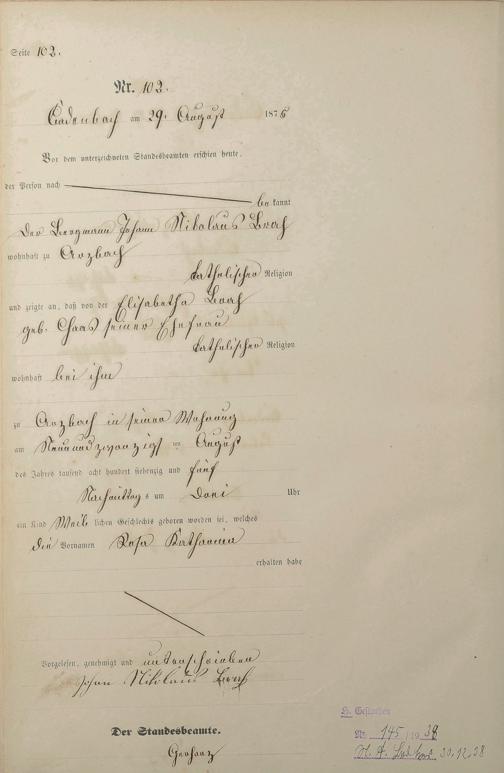 Seite 102.
Nr. 102.
Cadenbach am 29. August 1875
Vor dem unterzeichneten Standesbeamten erschien heute,
der Person nach
be kannt
der Bergmann Johann Nikolaus Brach
wohnhaft zu Arzbach
katholischer Religion
und zeigte an, daß von der Elisabetha Brach
geb. Chaas seiner Ehefrau
katholischer Religion
wohnhaft bei ihm
zu Arzbach in seiner Wohnung
am Neunundzwanzigst en August
des Jahres tausend acht hundert siebenzig und fünf
Nachmittag s um Drei Uhr
ein Kind Weib lichen Geschlechts geboren worden sei, welches
die Vornamen Rosa Katharina
erhalten habe
Vorgelesen, genehmigt und unterschrieben
Johan Nikolaus Brach
Der Standesbeamte.
Gerharz
H. Gestorben
Nr. 145 / 19 38
St. A. 30.12.38